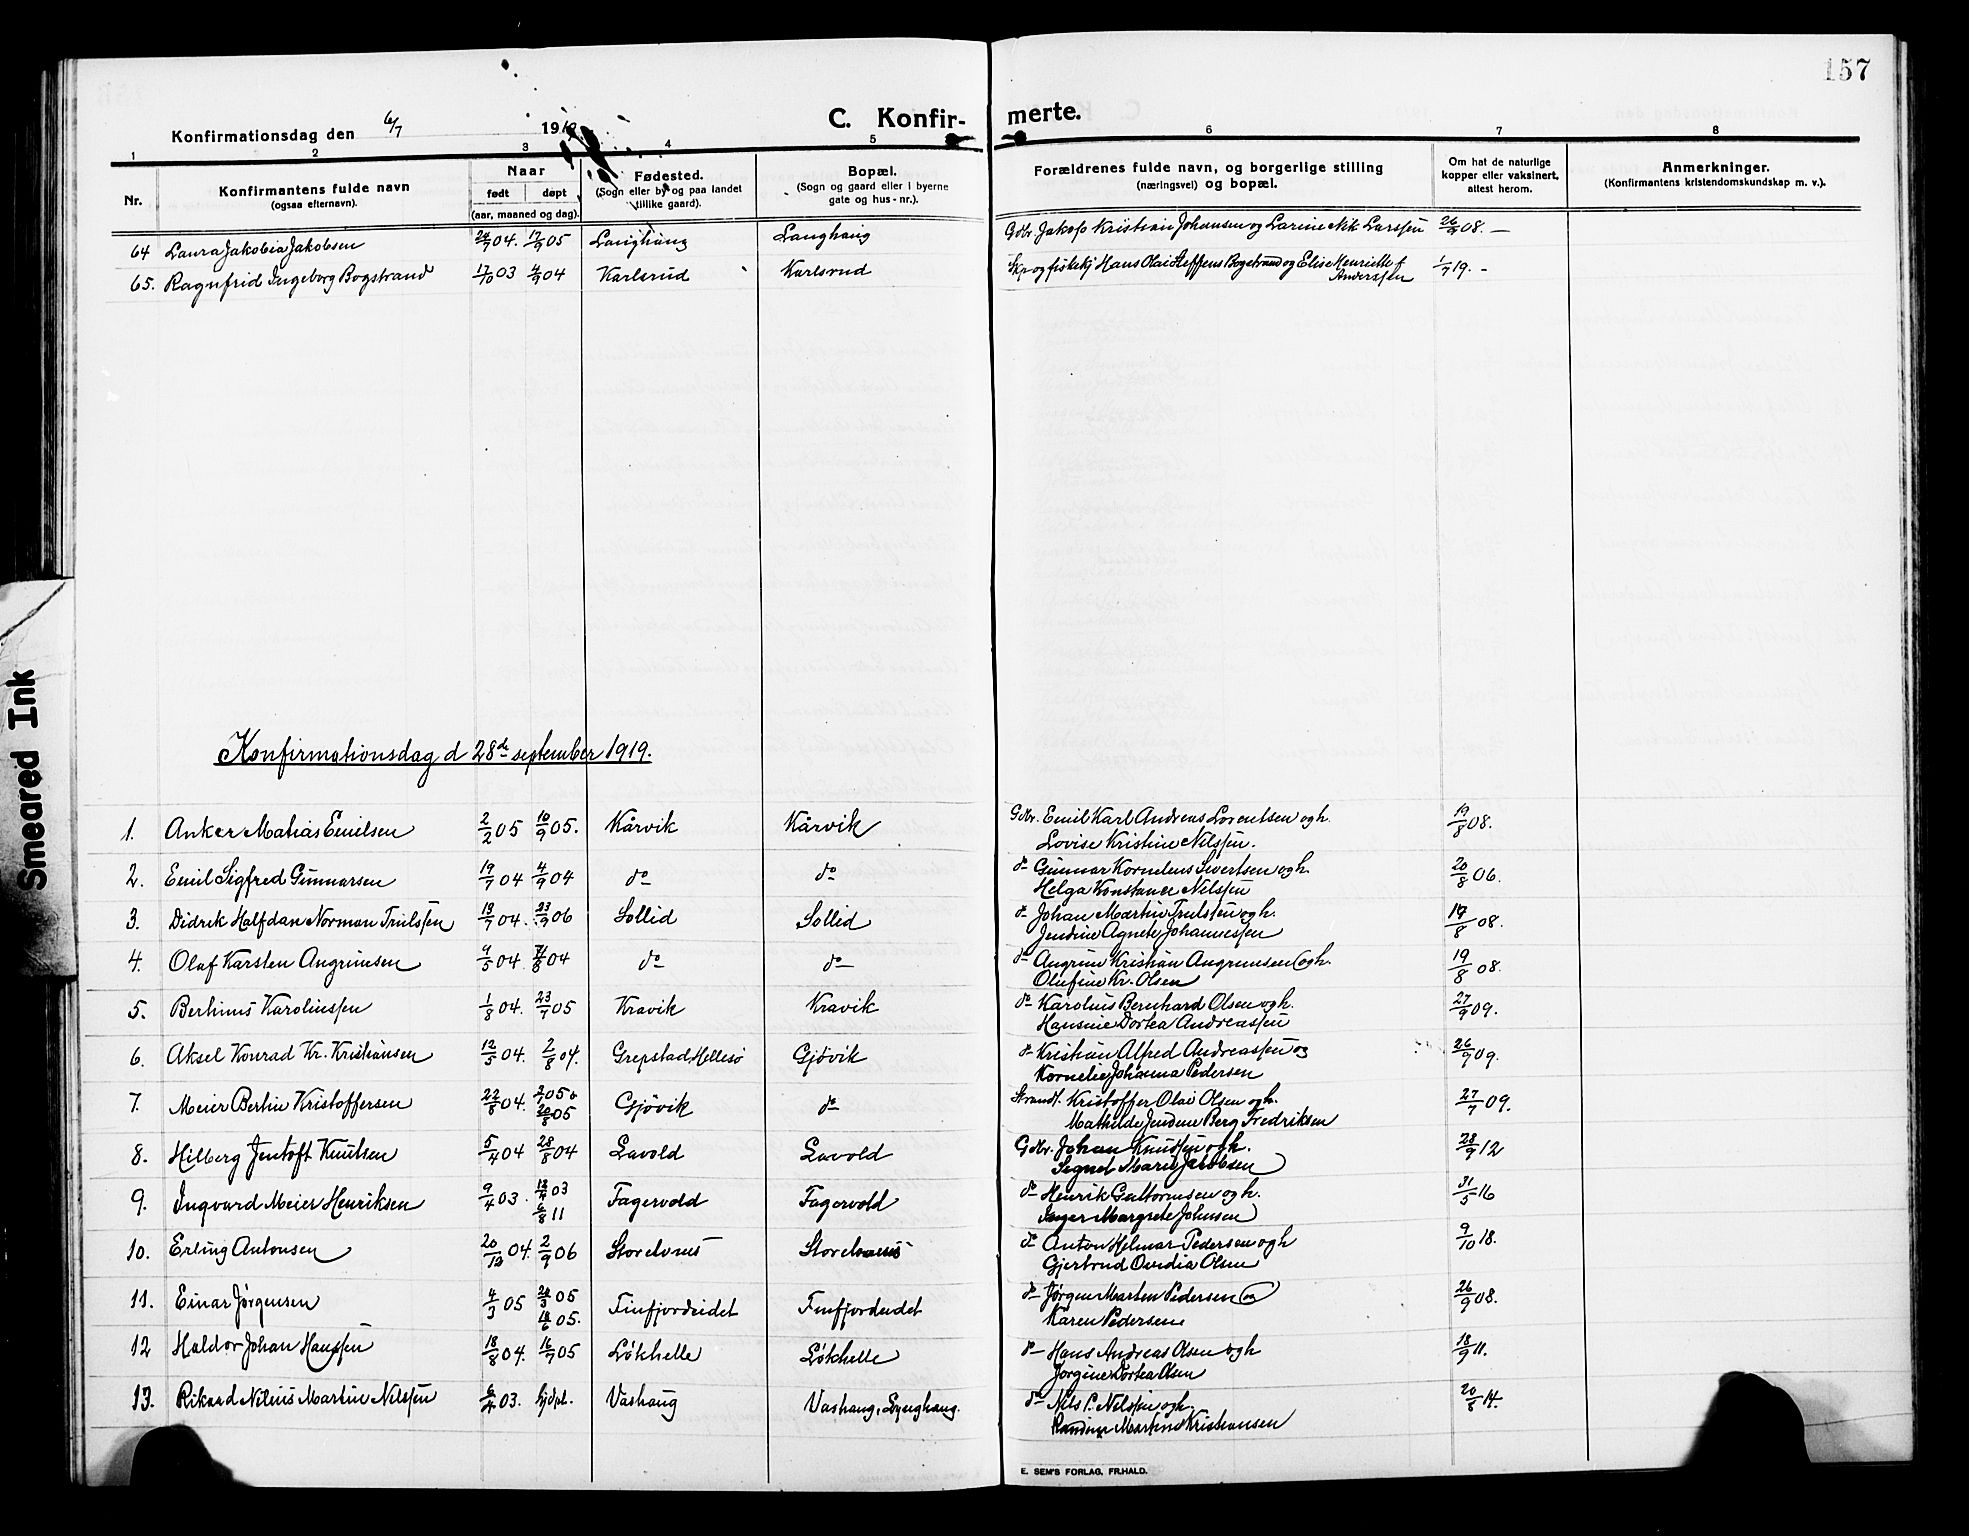 157
C. Konfir- merte.
Konfirmationsdag den 6/7 1919
1 2 3 4 5 6 7 8
Nr. Konfirmantens fulde navn (ogsaa efternavn). Naar født døpt (aar, maaned og dag). Fødested. (Sogn eller by og paa landet tillike gaard). Bopæl. (Sogn og gaard eller i byerne gate og hus-nr.). Forældrenes fulde navn, og borgerlige stilling (næringsvei) og bopæl. Om hat de naturlige kopper eller vaksinert, attest herom. Anmerkninger. (Konfirmantens kristendomskundskap m. v.).
64 Laura Jakobia Jakobsen 24/7 04. 17/9 05 Langhaug Langhaug Gdbr. Jakop Kristian Johansen og Larine Nik Larssen 26/9 08. —
65. Ragnfrid Ingeborg Bogstrand 17/10 03 4/9 04 Karlsrud Karlsrud Skp og fiskekj Hans Olai Steffens Bogstrand og Elise Henriette f Anderssen 1/7 19. -
Konfirmationsdag d 28de september 1919.
1. Anker Matias Emilsen 2/2 05 10/9 05. Kårvik Kårvik Gdbr. Emil Karl Andreas Lorentsen og h.
Lovise Kristine Nilssen. 19/8 08.
2. Emil Sigfred Gunnarsen 19/7 04 4/9 04 do do do Gunnar Kornelius Sivertsen og h.
Helga Konstance Nilssen 20/8 06.
3. Didrik Halfdan Norman Trulssen 13/7 04. 23/9 06 Sollid Sollid do Johan Martin Trulssen og h.
Jendine Agnete Johannessen 19/8 08.
4. Olaf Karsten Angrimsen 9/5 04 /8 04 do do do Angrim Kristian Angrimsen og h.
Olufine Kr. Olsen 19/8 08.
5. Berthinus Karolinssen 1/8 04. 23/7 05 Kravik Kravik do Karolius Bernhard Olsen og h.
Hansine Dortea Andreassen 27/9 09.
6. Aksel Konrad Kr. Kristiansen 12/5 04. 2/8 04. Grepstad, Hellesø Gjövik do Kristian Alfred Andreassen og
Kornelie Johanna Pedersen 26/9 09.
7. Meier Bertin Kristoffersen 22/8 04. 05 o 20/8 05 Gjövik do Strands. Kristoffer Olai Olsen og h.
Mathilde Jendine Berg Fredriksen 27/7 09.
8. Hilberg Jentoft Knutsen 5/4 04 28/8 04 Lavold Lavold Gdbr. Johan Knutsen og h.
Segnel Marie Jakobsen 28/9 12
9. Ingvard Meier Henriksen 9/4 03. 13/4 03 6/8 11 Fagervold Fagervold do Henrik Guttormsen og h.
Inger Margrete Johnsen 31/5 16
10. Erling Antonsen 20/12 04. 2/9 06 Storelvnes Storelvnes do Anton Helmar Pedersen og h
Gjertrud Ovidia Olsen 9/10 18.
11. Einar Jørgensen 4/3 05 /3 05 18/6 05. Finfjordeidet Finfjordeidet do Jørgen Marten Pedersen og
Karen Pedersen 26/9 08.
12 Haldor Johan Hanssen 18/8 04. 16/7 05 Løkhelle Løkhelle do Hans Andreas Olsen og h
Jörgine Dortea Olsen 18/9 11.
13. Rikard Nilius Martin Nilssen 6/4 03. hjdpt. Vashaug Vashaug, Lynghaug. do Nils P. Nilssen og h.
Randine Martine Kristiansen 20/8 14.
E. SEM'S FORLAG, FR.HALD.
Smeared Ink